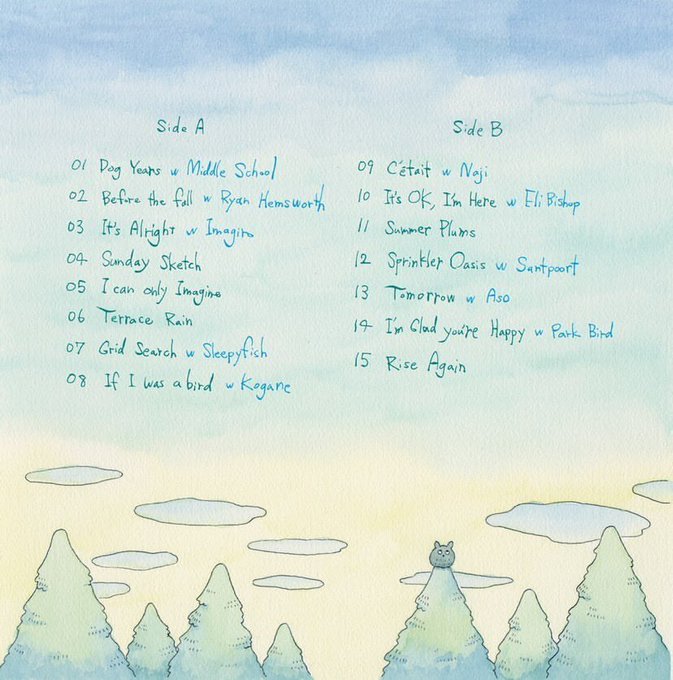 Side A
01 Dog Years w Middle School
02 Before the fall w Ryan Hemsworth
03 It's Alright w Imagiro
04 Sunday Sketch
05 I can only Imagine
06 Terrace Rain
07 Grid Search w Sleepyfish
08 If I was a bird w Kogane
Side B
09 C'était w Naji
10 It's OK, I'm Here w Eli Bishop
11 Summer Plums
12 Sprinkler Oasis w Santpoort
13 Tomorrow w Aso
14 I'm Glad you're Happy w Park Bird
15 Rise Again